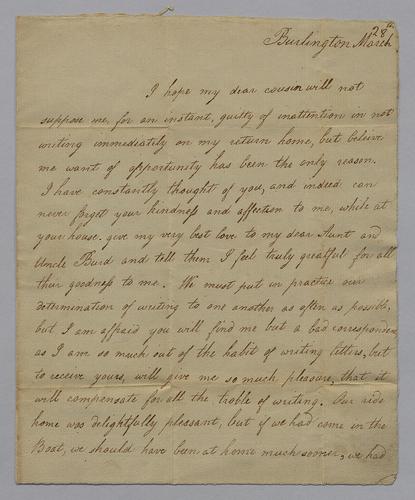 Burlington March 28th
I hope my dear cousin will not
suppose me, for an instant, guilty of inattention in not
writing immediately on my return home, but believe
me want of opportunity has been the only reason.
I have constantly thought of you, and indeed can
never forget your kindness and affection to me, while at
your house. give my very best love to my dear Aunt and
Uncle Burd and tell them I feel truly greatful for all
their goodness to me. We must put in practice our
determination of writing to one another as often as possible,
but I am affraid you will find me but a bad correspondent
as I am so much out of the habit of writing letters, but
to receive yours, will give me so much pleasure, that it
will compensate for all the troble of writing. Our ride
home was delightfully pleasant, but if we had come in the
Boat, we should have been at home much sooner, we had